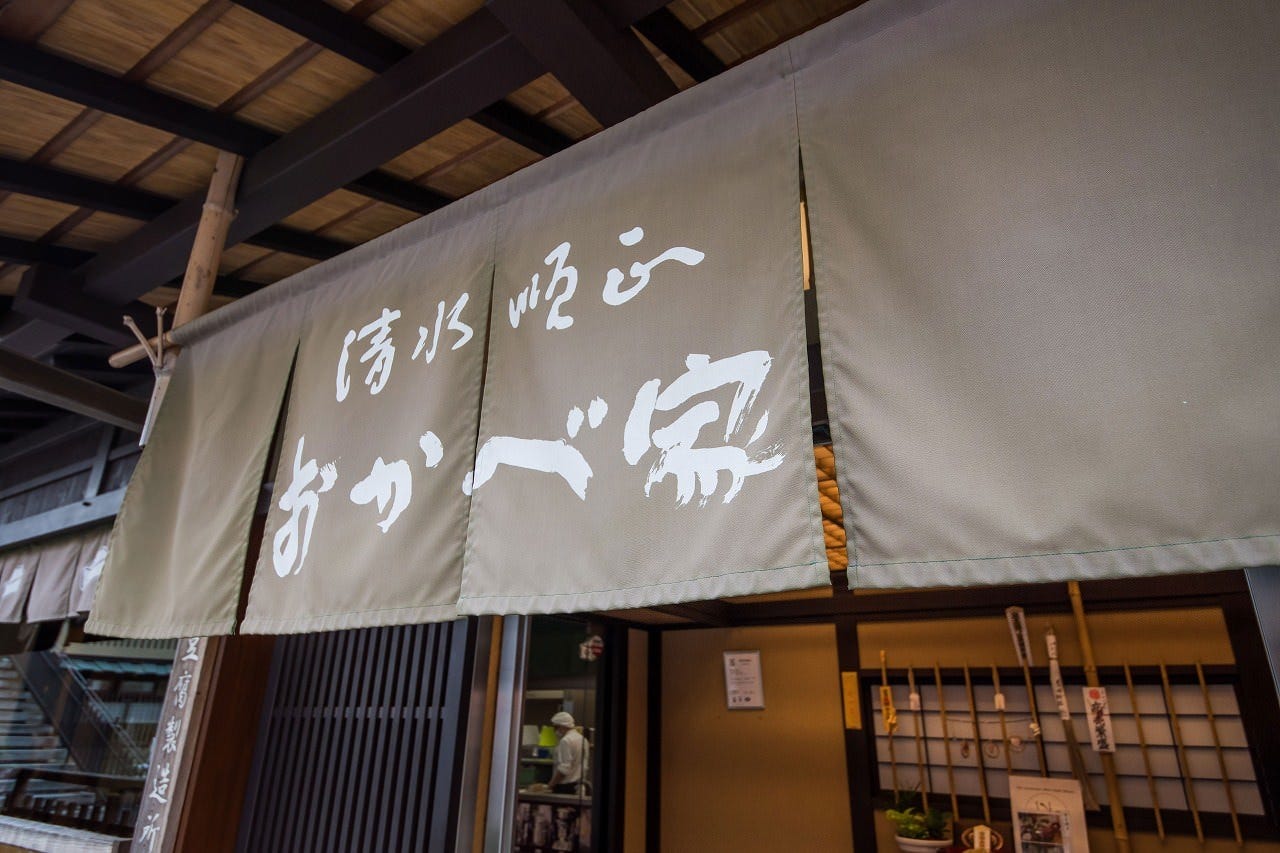 清水順正
おかべ家
豆腐製造所